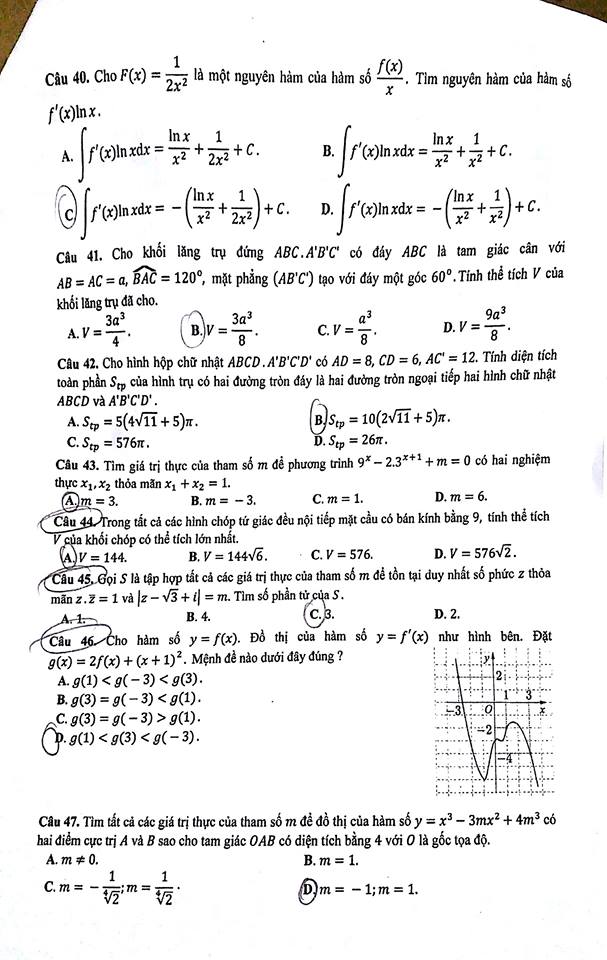 Câu 40. Cho F(x) = 1/(2x²) là một nguyên hàm của hàm số f(x)/x. Tìm nguyên hàm của hàm số
f′(x)ln x.
A. ∫f′(x)ln xdx = ln x/x² + 1/(2x²) + C. B. ∫f′(x)ln xdx = ln x/x² + 1/x² + C.
C ∫f′(x)ln xdx = −(ln x/x² + 1/(2x²)) + C. D. ∫f′(x)ln xdx = −(ln x/x² + 1/x²) + C.
Câu 41. Cho khối lăng trụ đứng ABC.A'B'C' có đáy ABC là tam giác cân với
AB = AC = a, BAC = 120°, mặt phẳng (AB'C') tạo với đáy một góc 60°. Tính thể tích V của
khối lăng trụ đã cho.
A. V = 3a³/4. B. V = 3a³/8. C. V = a³/8. D. V = 9a³/8.
Câu 42. Cho hình hộp chữ nhật ABCD.A'B'C'D' có AD = 8, CD = 6, AC' = 12. Tính diện tích
toàn phần Stp của hình trụ có hai đường tròn đáy là hai đường tròn ngoại tiếp hai hình chữ nhật
ABCD và A'B'C'D'.
A. Stp = 5(4√11 + 5)π. B. Stp = 10(2√11 + 5)π.
C. Stp = 576π. D. Stp = 26π.
Câu 43. Tìm giá trị thực của tham số m để phương trình 9ˣ − 2.3ˣ⁺¹ + m = 0 có hai nghiệm
thực x₁, x₂ thỏa mãn x₁ + x₂ = 1.
A. m = 3. B. m = −3. C. m = 1. D. m = 6.
Câu 44. Trong tất cả các hình chóp tứ giác đều nội tiếp mặt cầu có bán kính bằng 9, tính thể tích
V của khối chóp có thể tích lớn nhất.
A. V = 144. B. V = 144√6. C. V = 576. D. V = 576√2.
Câu 45. Gọi S là tập hợp tất cả các giá trị thực của tham số m để tồn tại duy nhất số phức z thỏa
mãn z.z̄ = 1 và |z − √3 + i| = m. Tìm số phần tử của S.
A. 1. B. 4. C. 3. D. 2.
Câu 46. Cho hàm số y = f(x). Đồ thị của hàm số y = f′(x) như hình bên. Đặt
g(x) = 2f(x) + (x + 1)². Mệnh đề nào dưới đây đúng ?
A. g(1) < g(−3) < g(3).
B. g(3) = g(−3) < g(1).
C. g(3) = g(−3) > g(1).
D. g(1) < g(3) < g(−3).
y
2
−3 O 1 3 x
−2
−4
Câu 47. Tìm tất cả các giá trị thực của tham số m để đồ thị của hàm số y = x³ − 3mx² + 4m³ có
hai điểm cực trị A và B sao cho tam giác OAB có diện tích bằng 4 với O là gốc tọa độ.
A. m ≠ 0. B. m = 1.
C. m = −1/⁴√2; m = 1/⁴√2. D. m = −1; m = 1.